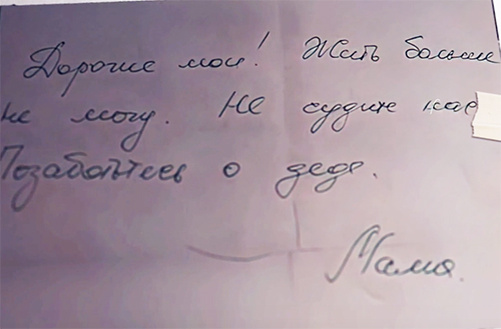 Дорогие мои! Жить больше
не могу. Не судите
Позаботьтесь о деде.
Мама.